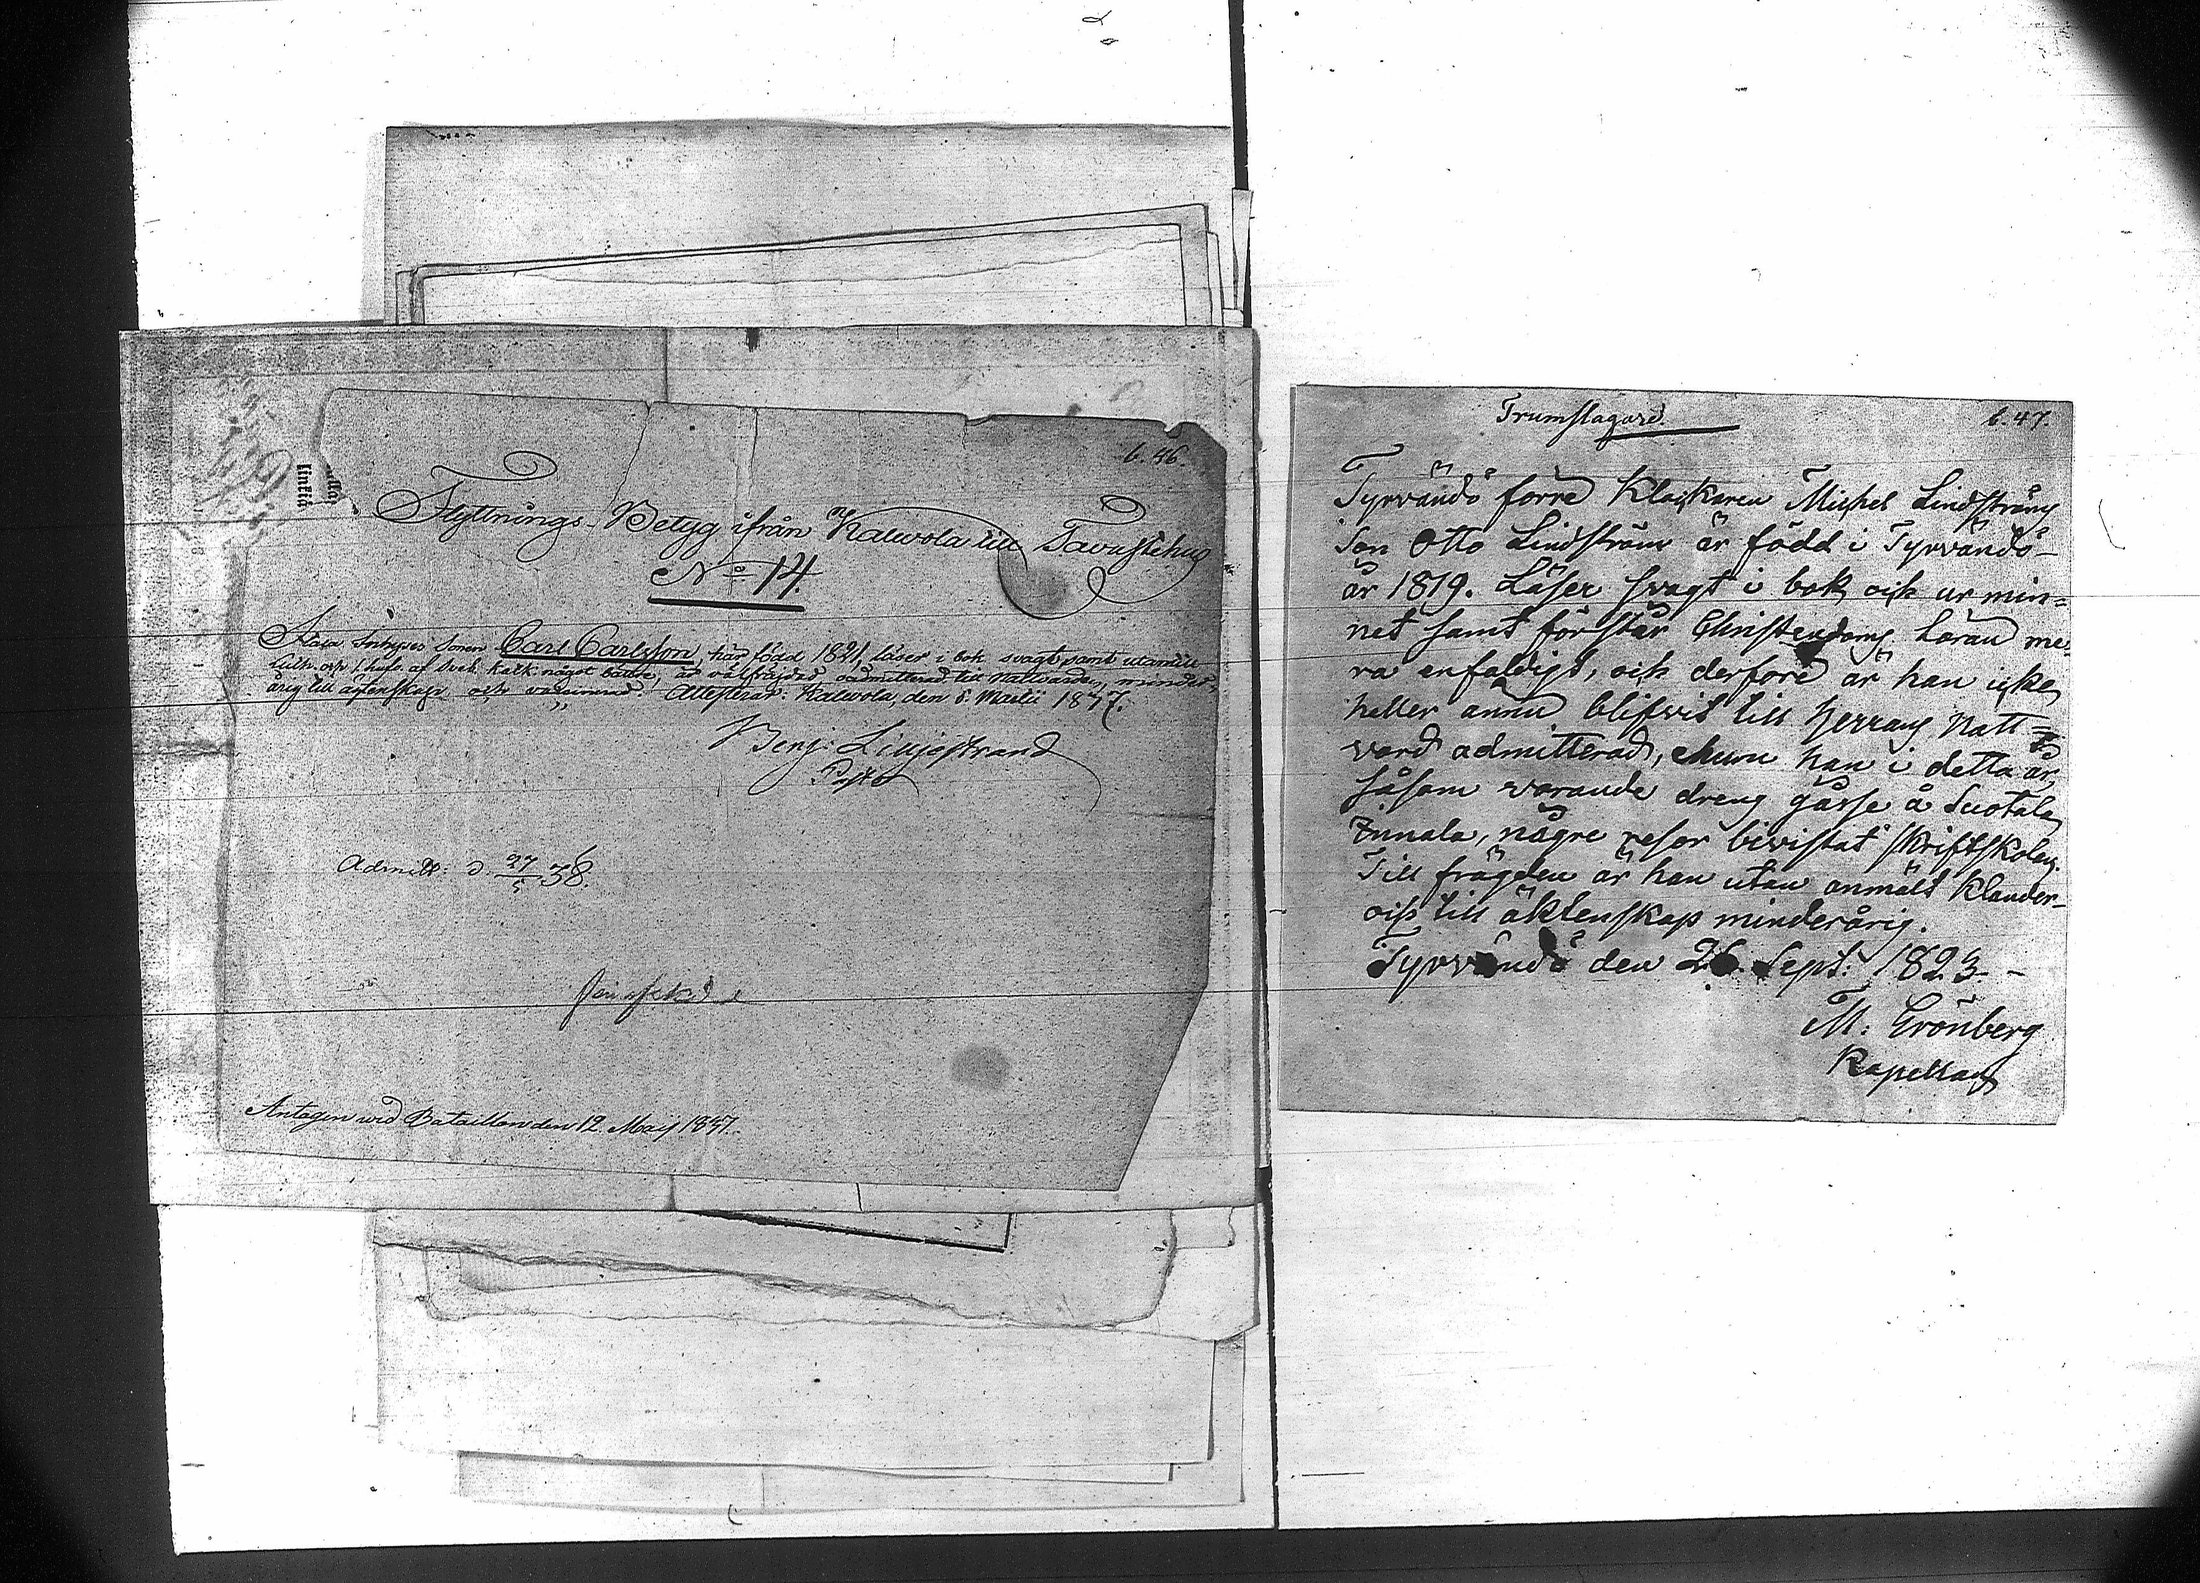 b. 46.
Flyttnings-Betyg ifrån Kalwola till Tavastehus
No 14.
Inhyses Sonen Carl Carlsson, född 1821, läser i bok svagt samt utantill
Luth. och af Sveb. Katk. något bättre, är välfräjdad, admitterad till Nattvarden, minder-
årig till äktenskap och Attesterar. Kalwola, den 5. Martii 1837.
Benj: Liljestrand
Pastor
Admitt: d. 27/5 38.
Antagen wid Bataillon den 12. Maij 1837.
Trumslagare. b. 47.
Tyrvändö förre Klockaren Michel Lindströms
Son Otto Lindström är född i Tyrvändö
år 1819. Läser svagt i bok och ur min-
net samt förstår Christendoms Läran me-
ra enfaldigt, och derföre är han icke
heller ännu blifvit till Herrans Natt-
vard admitterad, ehuru han i detta år,
såsom varande dreng gåsse å Suotala
Innala, någre resor bivistat Skriftskolan.
Till frägden är han utan anmält Klander
och till äktenskap minderårig.
Tyrvändö den 26. Sept: 1823. -
M: Grönberg
Kapellan